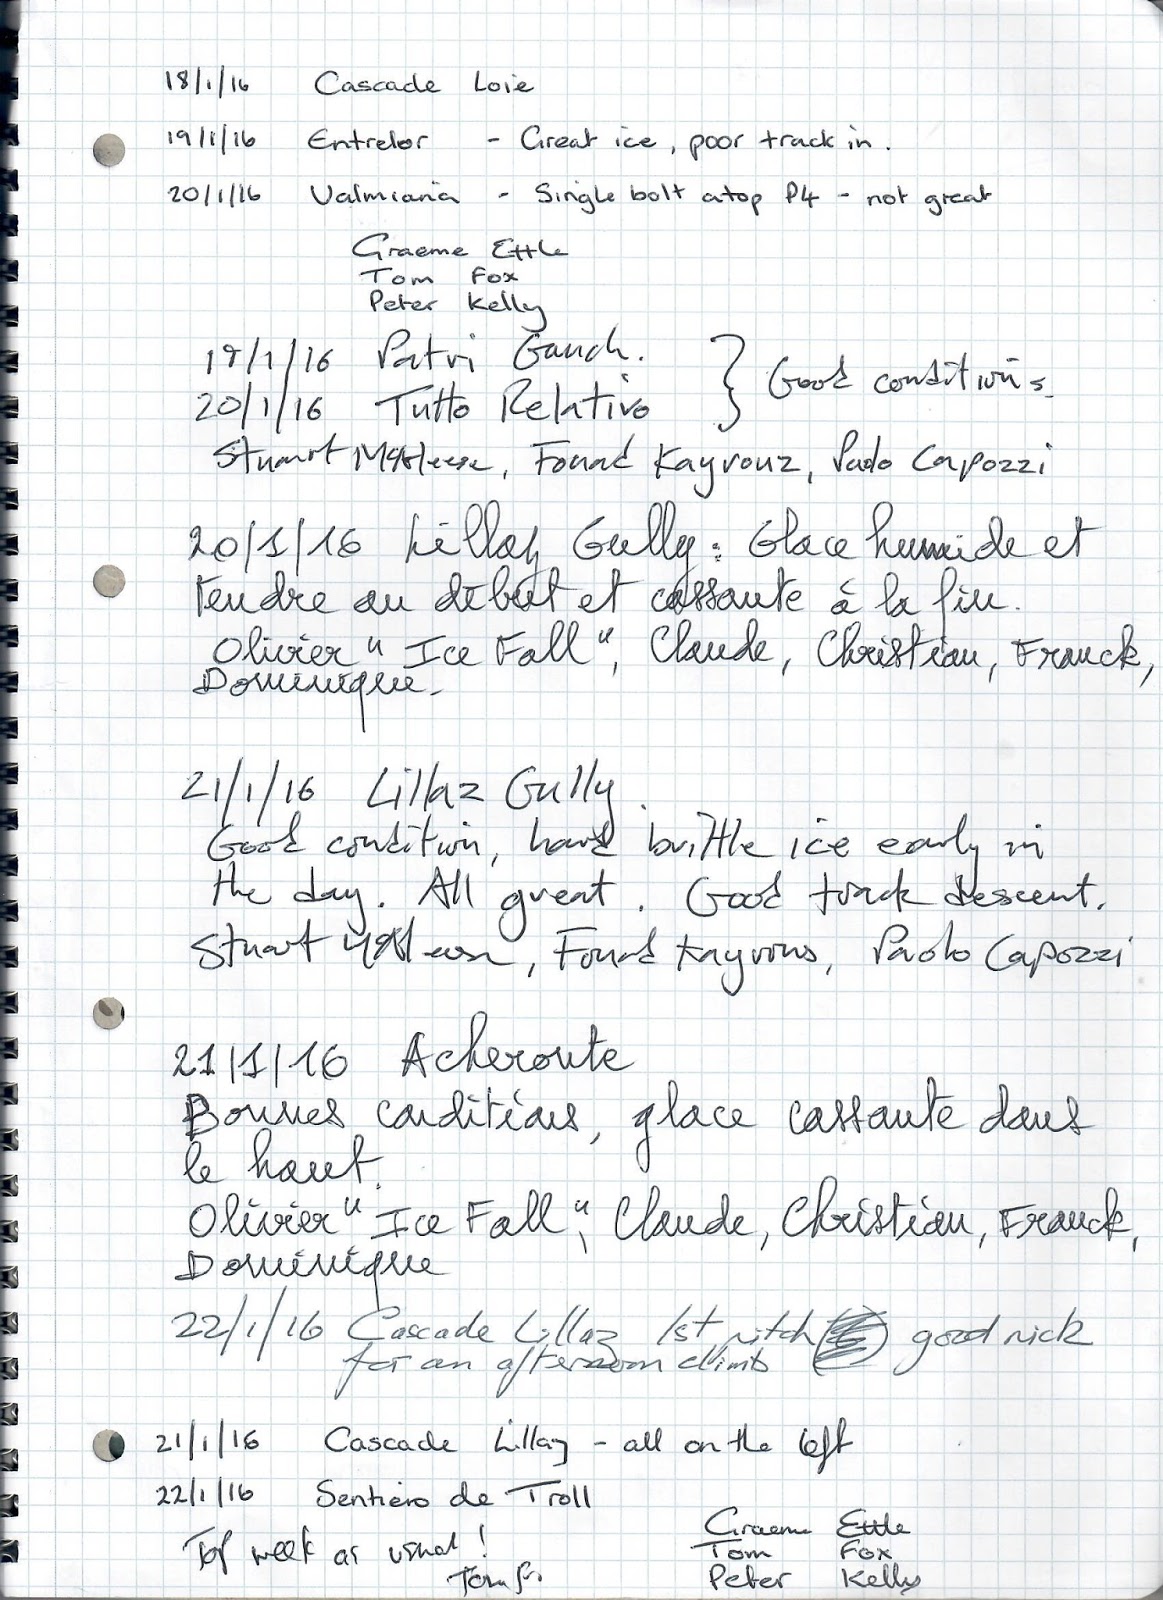 18/1/16 Cascade Loie
19/1/16 Entrelor - Great ice, poor track in.
20/1/16 Valmiana - Single bolt atop P4 - not great
Graeme Ettle
Tom Fox
Peter Kelly
19/1/16 Patri Gauch. } Good conditions.
20/1/16 Tutto Relativo
Stuart McAleese, Fouad Kayrouz, Paolo Capozzi
20/1/16 Lillaz Gully : Glace humide et
tendre au début et cassante à la fin.
Olivier "Ice Fall", Claude, Christian, Franck,
Dominique.
21/1/16 Lillaz Gully.
Good condition, hard brittle ice early in
the day. All great. Good track descent.
Stuart McAleese, Fouad Kayrouz, Paolo Capozzi
21/1/16 Acheronte
Bonnes conditions, glace cassante dans
le haut.
Olivier "Ice Fall", Claude, Christian, Franck,
Dominique
22/1/16 Cascade Lillaz 1st pitch good nick
for an afternoon climb
21/1/16 Cascade Lillaz - all on the left
22/1/16 Sentiero de Troll
Top week as usual!
Graeme Ettle
Tom Fox
Peter Kelly